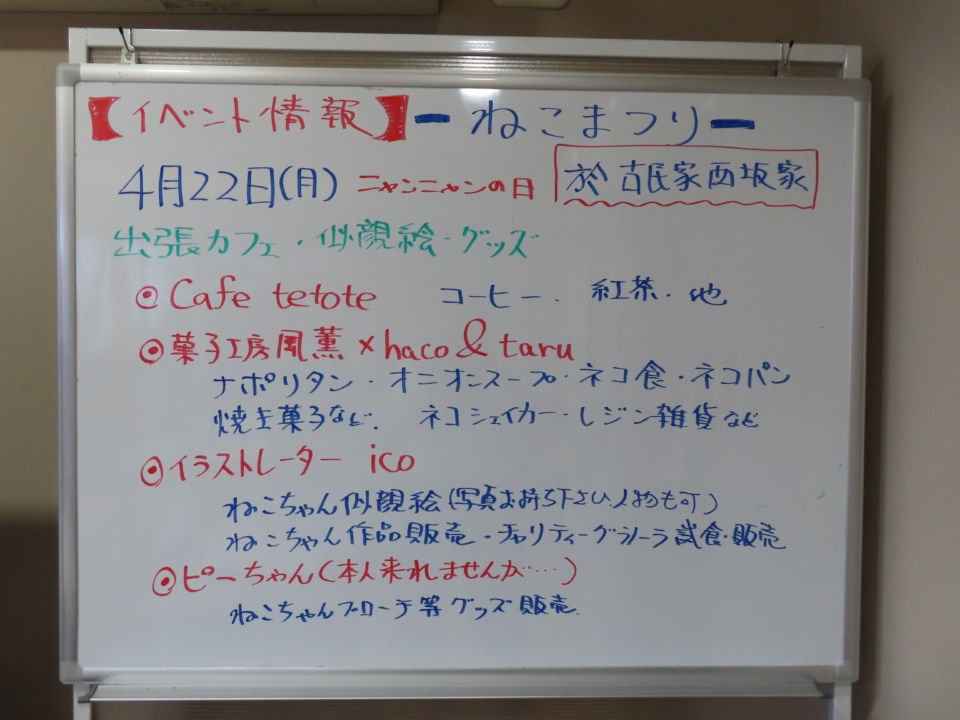 【イベント情報】ーねこまつりー
4月22日(月) ニャンニャンの日 於 古民家西坂家
出張カフェ・似顔絵・グッズ
◎Cafe tetote コーヒー・紅茶・他
◎菓子工房風薫×haco&taru
ナポリタン・オニオンスープ・ネコ食・ネコパン
焼き菓子など. ネコシェイカー・レジン雑貨など
◎イラストレーター ico
ねこちゃん似顔絵(写真お持ち下さい.人物も可)
ねこちゃん作品販売・チャリティーグラノーラ試食・販売
◎ピーちゃん(本人来れませんが…)
ねこちゃんブローチ等グッズ販売.